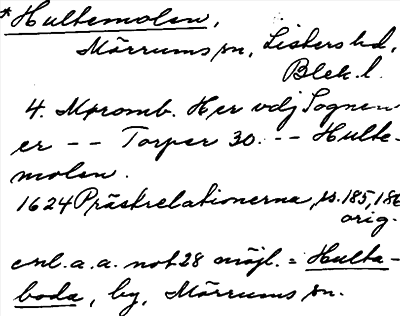 * Hultemolen,
Mörrums sn, Listers hd,
Blek. l.
4. Møromb. Her vdj Sognen
er -- Torper 30. -- Hulte-
molen.
1624 Prästrelationerna, s. 185, 186
orig.
enl. a. a. not 28 möjl. = Hulta-
boda, by, Mörrums sn.